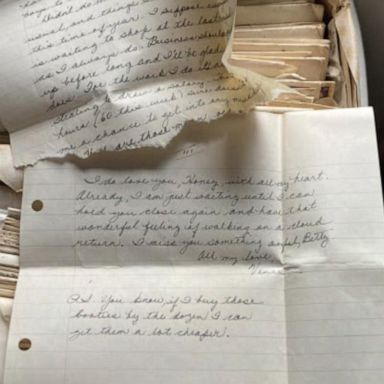 didn't
usual, and things
this time of year. I suppose
is waiting to shop at the last
as I always do. Business should
up before long and I'll be glad
does. For the work I do
to draw a salary
hours (60 this week) sure does
me a chance to get into any
are those
I do love you, Honey, with all my heart.
Already, I am just waiting until I can
hold you close again and have that
wonderful feeling of walking on a cloud
return. I miss you something awful, Betty
All my love,
P.S. You know, if I buy those
booties by the dozen I can
get them a lot cheaper.